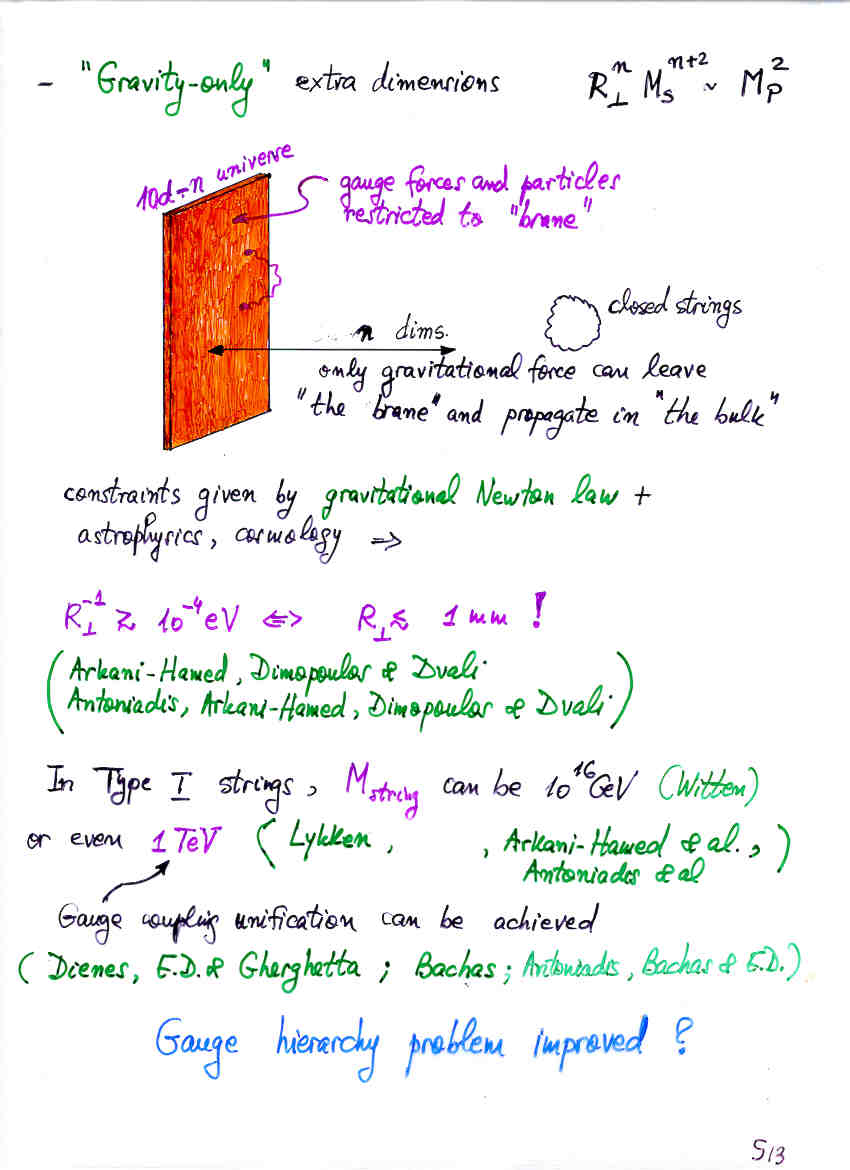 - "Gravity-only" extra dimensions R⊥^n M_S^{n+2} ~ M_P^2
10d-n universe
gauge forces and particles
restricted to "brane"
closed strings
n dims.
only gravitational force can leave
"the brane" and propagate in "the bulk"
constraints given by gravitational Newton law +
astrophysics, cosmology ⇒
R⊥^{-1} ≳ 10^{-4} eV ⇔ R⊥ ≲ 1 mm !
(Arkani-Hamed, Dimopoulos & Dvali
Antoniadis, Arkani-Hamed, Dimopoulos & Dvali)
In Type I strings, M_string can be 10^{16} GeV (Witten)
or even 1 TeV (Lykken, , Arkani-Hamed & al., )
Antoniadis & al
Gauge coupling unification can be achieved
(Dienes, E.D. & Gherghetta ; Bachas ; Antoniadis, Bachas & E.D.)
Gauge hierarchy problem improved ?
S13